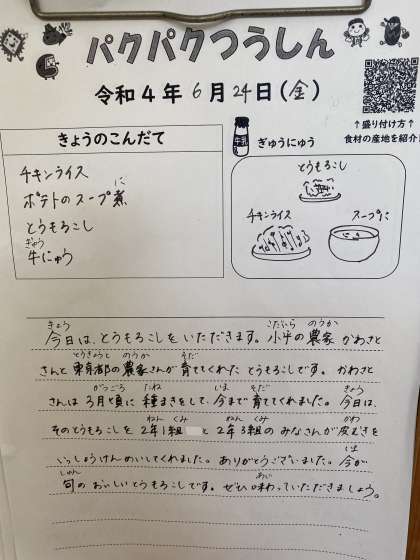 パクパクつうしん
令和4年6月24日(金)
↑盛り付け方↑
食材の産地を紹介
きょうのこんだて
チキンライス
ポテトのスープ煮
に
とうもろこし
ぎゅう
牛にゅう
牛乳
ぎゅうにゅう
とうもろこし
チキンライス
スープに
きょう こだいら のうか
今日は、とうもろこしをいただきます。小平の農家 かわさと
とうきょうと のうか そだ
さんと東京都の農家さんが育ててくれたとうもろこしです。かわさと
がつごろ たね いま そだ きょう
さんは3月頃に種まきをして、今まで育ててくれました。今日は、
ねん くみ ねん くみ かわ
そのとうもろこしを2年1組 と2年3組のみなさんが皮むきを
いま
いっしょうけんめいしてくれました。ありがとうございました。今が
しゅん あじ
旬のおいしいとうもろこしです。ぜひ味わっていただきましょう。